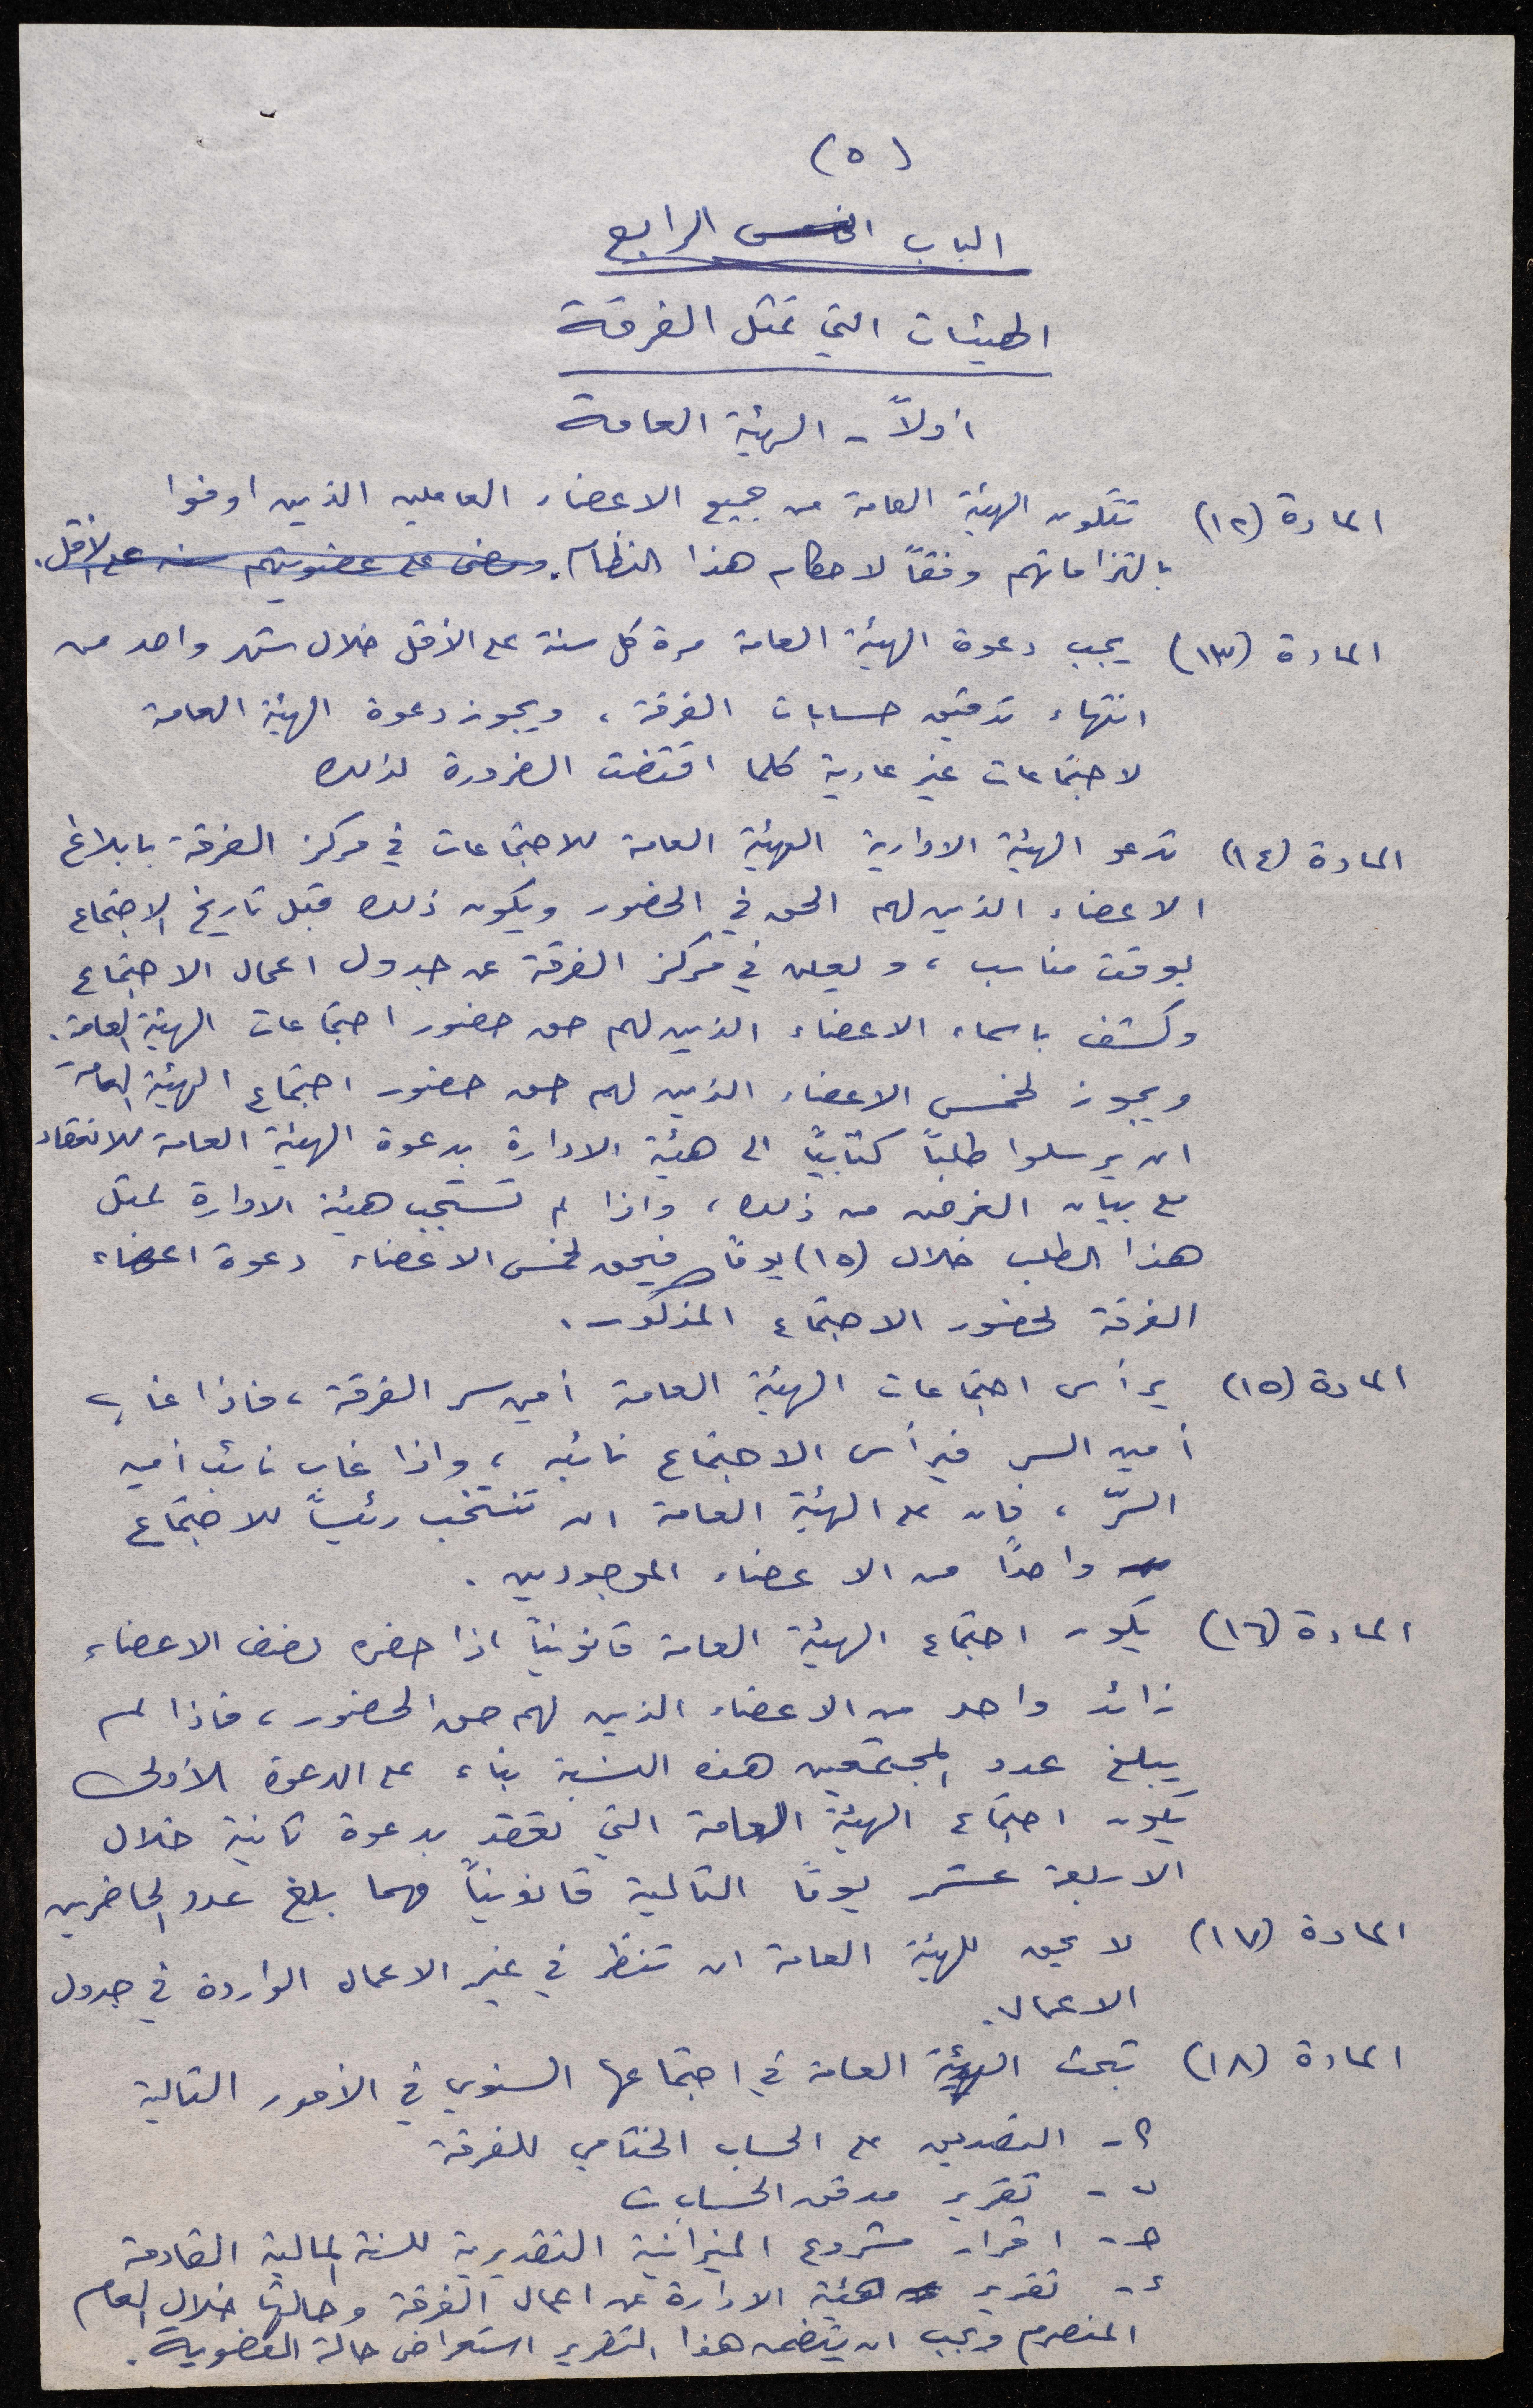 (٥)
الباب الخامس الرابع
الهيئات التي تمثل الفرقة
أولاً - الهيئة العامة
المادة (١٢) تتكون الهيئة العامة من جميع الاعضاء العاملين الذين اوفوا
بالتزاماتهم وفقاً لاحكام هذا النظام. ومضى على عضويتهم سنة على الأقل.
المادة (١٣) يجب دعوة الهيئة العامة مرة كل سنة على الأقل خلال شهر واحد من
انتهاء تدقيق حسابات الفرقة، ويجوز دعوة الهيئة العامة
لاجتماعات غير عادية كلما اقتضت الضرورة لذلك
المادة (١٤) تدعو الهيئة الادارية الهيئة العامة للاجتماعات في مركز الفرقة بابلاغ
الاعضاء الذين لهم الحق في الحضور ويكون ذلك قبل تاريخ الاجتماع
بوقت مناسب، ويعلن في مركز الفرقة عن جدول اعمال الاجتماع
وكشف باسماء الاعضاء الذين لهم حق حضور اجتماعات الهيئة العامة.
ويجوز لخمس الاعضاء الذين لهم حق حضور اجتماع الهيئة العامة
ان يرسلوا طلباً كتابياً الى هيئة الادارة بدعوة الهيئة العامة للانعقاد
مع بيان الغرض من ذلك، واذا لم تستجب هيئة الادارة لمثل
هذا الطلب خلال (١٥) يوماً فيحق لخمس الاعضاء دعوة اعضاء
الفرقة لحضور الاجتماع المذكور.
المادة (١٥) يرأس اجتماعات الهيئة العامة أمين سر الفرقة، فاذا غاب
أمين السر فيرأس الاجتماع نائبه، واذا غاب نائب أمين
السرّ، فان على الهيئة العامة ان تنتخب رئيساً للاجتماع
واحداً من الاعضاء الموجودين.
المادة (١٦) يكون اجتماع الهيئة العامة قانونياً اذا حضره نصف الاعضاء
زائد واحد من الاعضاء الذين لهم حق الحضور، فاذا لم
يبلغ عدد المجتمعين هذه النسبة بناء على الدعوة الأولى
يكون اجتماع الهيئة العامة التي تعقد بدعوة ثانية خلال
الاربعة عشر يوماً التالية قانونياً مهما بلغ عدد الحاضرين
المادة (١٧) لا يحق للهيئة العامة ان تنظر في غير الاعمال الواردة في جدول
الاعمال.
المادة (١٨) تبحث الهيئة العامة في اجتماعها السنوي في الأمور التالية
أ - التصديق على الحساب الختامي للفرقة
ب - تقرير مدقق الحسابات
ج - اقرار مشروع الميزانية التقديرية للسنة المالية القادمة
د - تقرير هيئة الادارة عن اعمال الفرقة وحالتها خلال العام
المنصرم ويجب ان يتضمن هذا التقرير استعراض حالة العضوية.